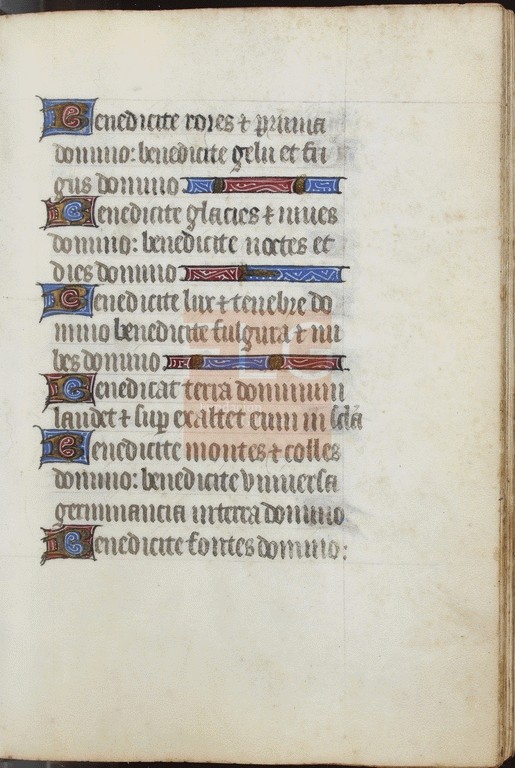 Benedicite rores & pruina
domino: benedicite gelu et fri
gus domino
Benedicite glacies & niues
domino: benedicite noctes et
dies domino
Benedicite lux & tenebre do
mino benedicite fulgura & nu
bes domino
Benedicat terra dominum
laudet & sup exaltet eum in scła
Benedicite montes & colles
domino: benedicite vniuersa
germinancia in terra domino
Benedicite fontes domino: